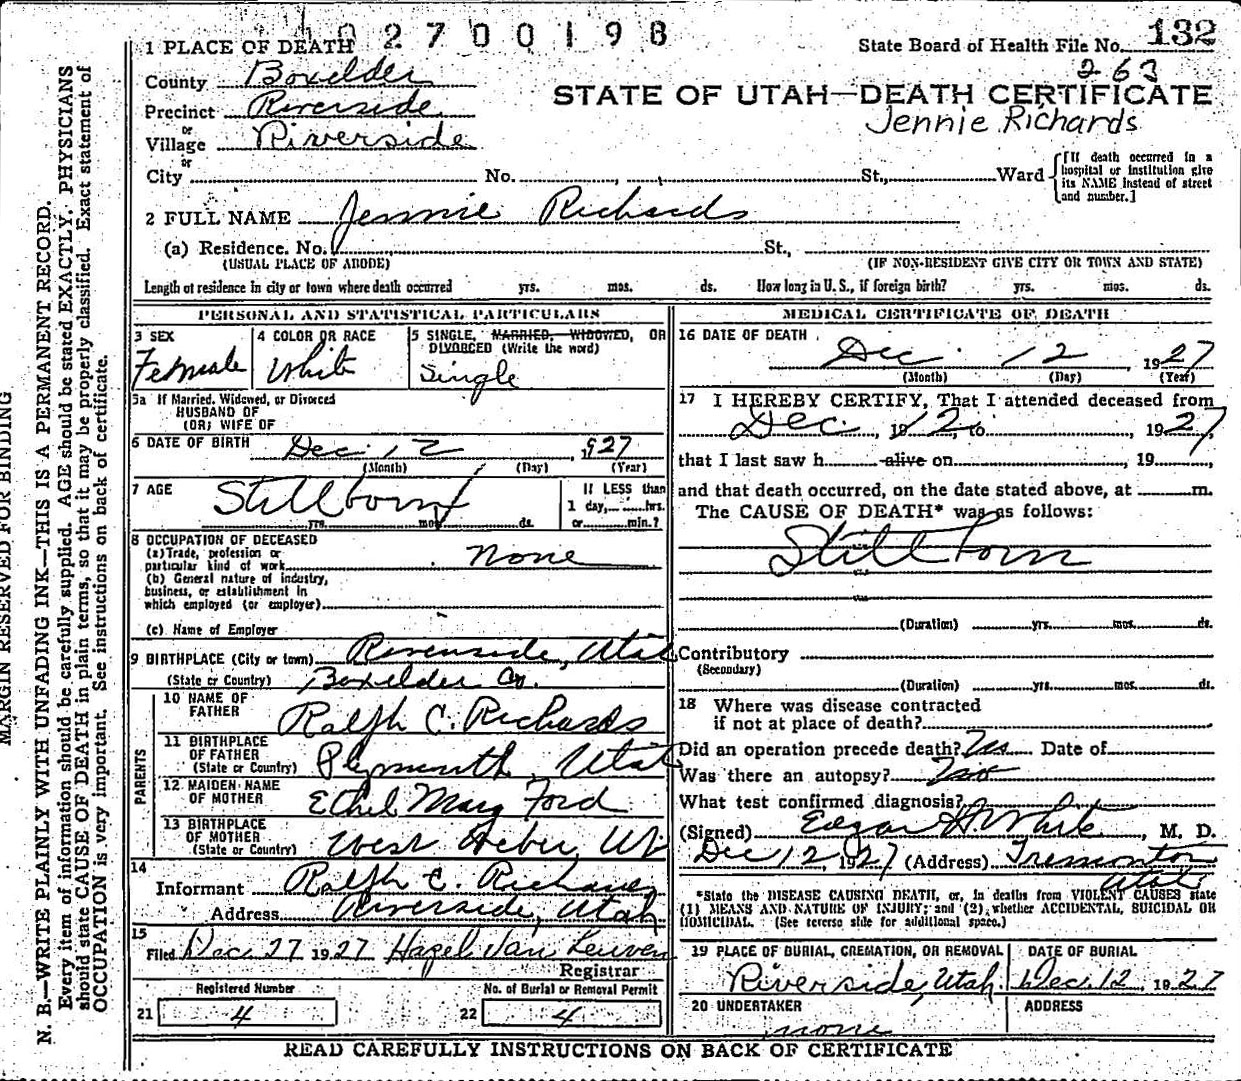 02700198
1 PLACE OF DEATH
State Board of Health File No. 132
263
County Boxelder
STATE OF UTAH—DEATH CERTIFICATE
Precinct Riverside
Jennie Richards
or
Village Riverside
or
City No. , St., Ward
[If death occurred in a hospital or institution give its NAME instead of street and number.]
2 FULL NAME Jennie Richards
(a) Residence. No. St.,
(USUAL PLACE OF ABODE) (IF NON-RESIDENT GIVE CITY OR TOWN AND STATE)
Length of residence in city or town where death occurred yrs. mos. ds. How long in U. S., if foreign birth? yrs. mos. ds.
PERSONAL AND STATISTICAL PARTICULARS
3 SEX
Female
4 COLOR OR RACE
White
5 SINGLE, MARRIED, WIDOWED, OR
DIVORCED (Write the word)
Single
5a If Married, Widowed, or Divorced
HUSBAND OF
(OR) WIFE OF
6 DATE OF BIRTH Dec. 12, 1927
(Month) (Day) (Year)
7 AGE
Stillborn
yrs. mos. ds.
If LESS than
1 day, hrs.
or min.?
8 OCCUPATION OF DECEASED
(a) Trade, profession or
particular kind of work None
(b) General nature of industry,
business, or establishment in
which employed (or employer)
(c) Name of Employer
9 BIRTHPLACE (City or town) Riverside, Utah
(State or Country) Boxelder Co.
PARENTS
10 NAME OF
FATHER Ralph C. Richards
11 BIRTHPLACE
OF FATHER
(State or Country) Plymouth, Utah
12 MAIDEN NAME
OF MOTHER Ethel Mary Ford
13 BIRTHPLACE
OF MOTHER
(State or Country) West Heber, Ut
14
Informant Ralph C. Richards
Address Riverside, Utah
15
Filed Dec. 27 1927 Hazel Van Leuven
Registrar
Registered Number
21 4
No. of Burial or Removal Permit
22 4
MEDICAL CERTIFICATE OF DEATH
16 DATE OF DEATH
Dec. 12 1927
(Month) (Day) (Year)
17 I HEREBY CERTIFY, That I attended deceased from
Dec. 12, to , 1927,
that I last saw h alive on , 19 ,
and that death occurred, on the date stated above, at m.
The CAUSE OF DEATH* was as follows:
Still born
(Duration) yrs. mos. ds.
Contributory
(Secondary)
(Duration) yrs. mos. ds.
18 Where was disease contracted
if not at place of death?
Did an operation precede death? Date of
Was there an autopsy? No
What test confirmed diagnosis?
(Signed) Edgar H. White, M. D.
Dec 12, 1927 (Address) Tremonton
Utah
*State the DISEASE CAUSING DEATH, or, in deaths from VIOLENT CAUSES state
(1) MEANS AND NATURE OF INJURY; and (2) whether ACCIDENTAL, SUICIDAL OR
HOMICIDAL. (See reverse side for additional space.)
19 PLACE OF BURIAL, CREMATION, OR REMOVAL
Riverside, Utah.
DATE OF BURIAL
Dec. 12 1927
20 UNDERTAKER
none
ADDRESS
READ CAREFULLY INSTRUCTIONS ON BACK OF CERTIFICATE
MARGIN RESERVED FOR BINDING
N. B.—WRITE PLAINLY WITH UNFADING INK—THIS IS A PERMANENT RECORD.
Every item of information should be carefully supplied. AGE should be stated EXACTLY. PHYSICIANS
should state CAUSE OF DEATH in plain terms, so that it may be properly classified. Exact statement of
OCCUPATION is very important. See instructions on back of certificate.